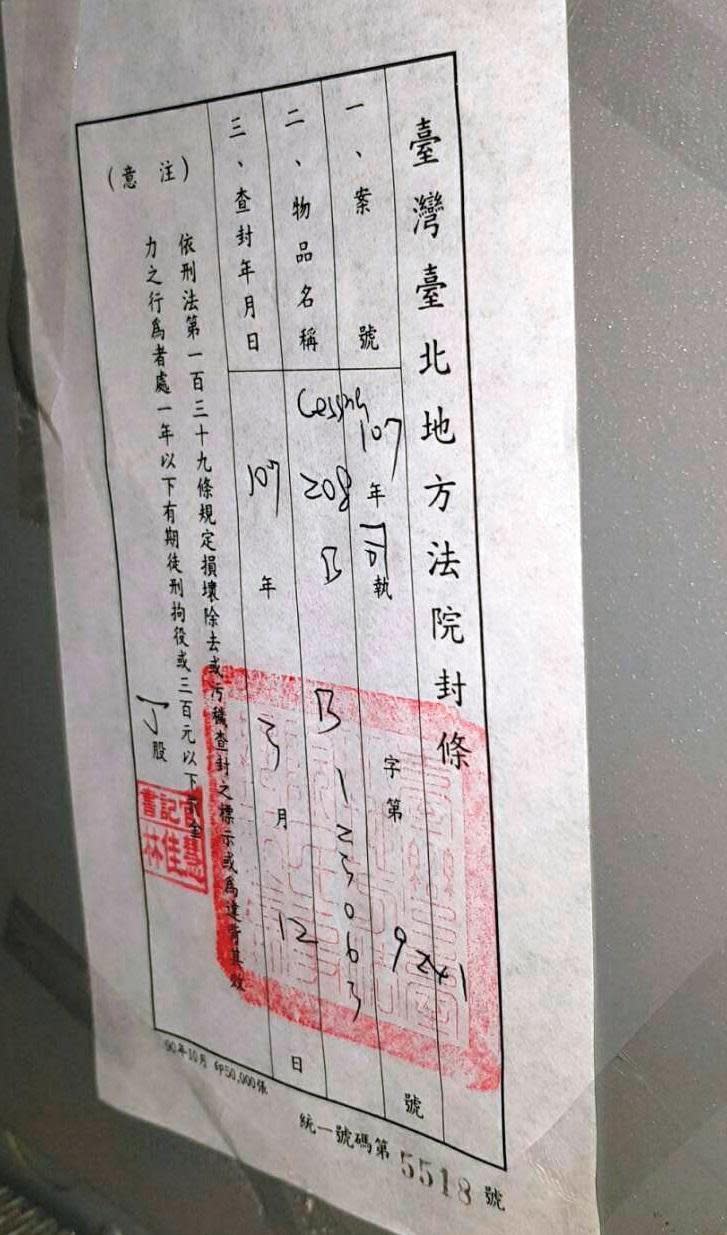 臺灣臺北地方法院封條
一、案號
107年司執字第9241號
二、物品名稱
Cessna 208 B B123063
三、查封年月日
107年3月12日
(注意)
依刑法第一百三十九條規定損壞除去或污穢查封之標示或為違背其效
力之行為者處一年以下有期徒刑拘役或三百元以下罰金
丁股
書記官
林佳慧
90年10月 印50,000張
統一號碼第5518號